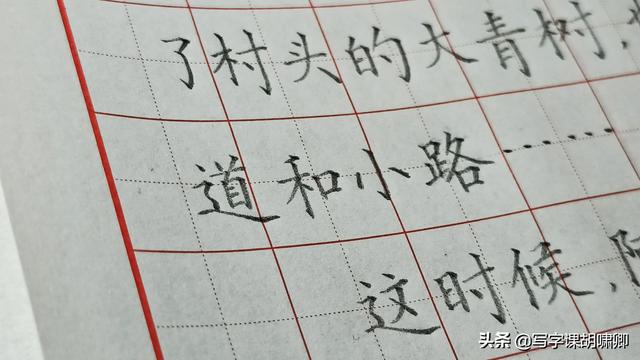 了村头的大青树，
道和小路……
这时候，
头条 @写字课胡啸卿